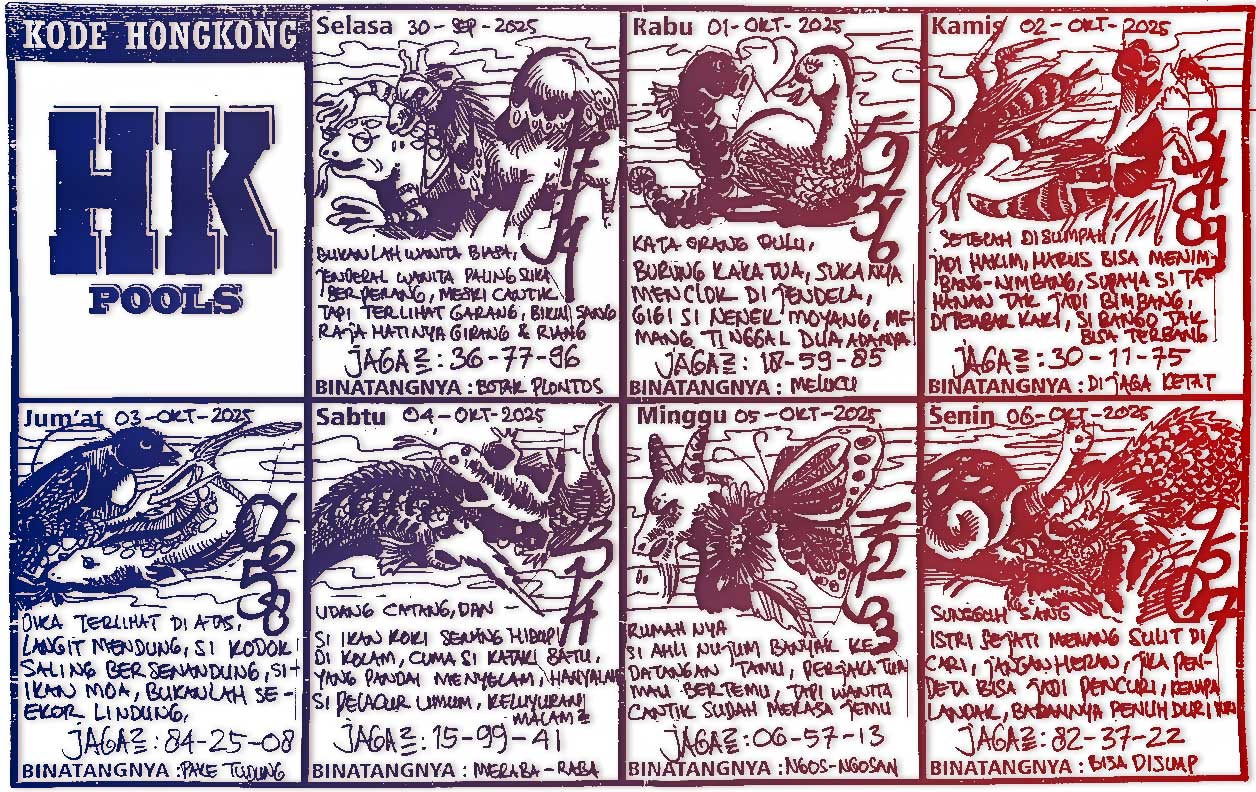 KODE HONGKONG
HK
POOLS
Selasa 30-SEP-2025
BUKANLAH WANITA BIASA,
JENDERAL WANITA PALING SUKA
BERPERANG, MESKI CANTIK
TAPI TERLIHAT GARANG, BIKIN SANG
RAJA HATINYA GIRANG & RIANG
JAGA2: 36-77-96
BINATANGNYA: BOTAK PLONTOS
Rabu 01-OKT-2025
5
9
3
6
KATA ORANG DULU,
BURUNG KAKATUA, SUKANYA
MENCLOK DI JENDELA,
GIGI SI NENEK MOYANG, ME-
MANG TINGGAL DUA ADANYA
JAGA2: 18-59-85
BINATANGNYA: MELUCU
Kamis 02-OKT-2025
3
4
8
9
SETELAH DISUMPAH,
JADI HAKIM, HARUS BISA MENIM-
BANG-NIMBANG, SUPAYA SI TA-
HANAN TAK JADI BIMBANG,
DITEMBAK KAKI, SI BANGO TAK
BISA TERBANG
JAGA2: 30-11-75
BINATANGNYA: DIJAGA KETAT
Jum'at 03-OKT-2025
6
5
8
JIKA TERLIHAT DI ATAS,
LANGIT MENDUNG, SI KODOK
SALING BERSENANDUNG, SI-
IKAN MOA, BUKANLAH SE-
EKOR LINDUNG,
JAGA2: 84-25-08
BINATANGNYA: PAKE TUDUNG
Sabtu 04-OKT-2025
UDANG CATANG, DAN
SI IKAN KOKI SENING HIDUP
DI KOLAM, CUMA SI KATAK BATU,
YANG PANDAI MENYELAM, HANYALAH
SI PELACUR UMUM, KELUYURAN
MALAM2
JAGA2: 15-99-41
BINATANGNYA: MERABA-RABA
Minggu 05-OKT-2025
2
3
RUMAHNYA
SI AHLI NUJUM BANYAK KE-
DATANGAN TAMU, PERJAKA TUA
MAU BERTEMU, TAPI WANITA
CANTIK SUDAH MERASA JEMU
JAGA2: 06-57-13
BINATANGNYA: NGOS-NGOSAN
Senin 06-OKT-2025
9
5
0
7
SUNGGUH SANG
ISTRI SEJATI MEMANG SULIT DI
CARI, JANGAN HERAN, JIKA PEN-
DETA BISA JADI PENCURI, KENAPA
LANDAK, BADANNYA PENUH DURI
JAGA2: 82-37-22
BINATANGNYA: BISA DISUMP